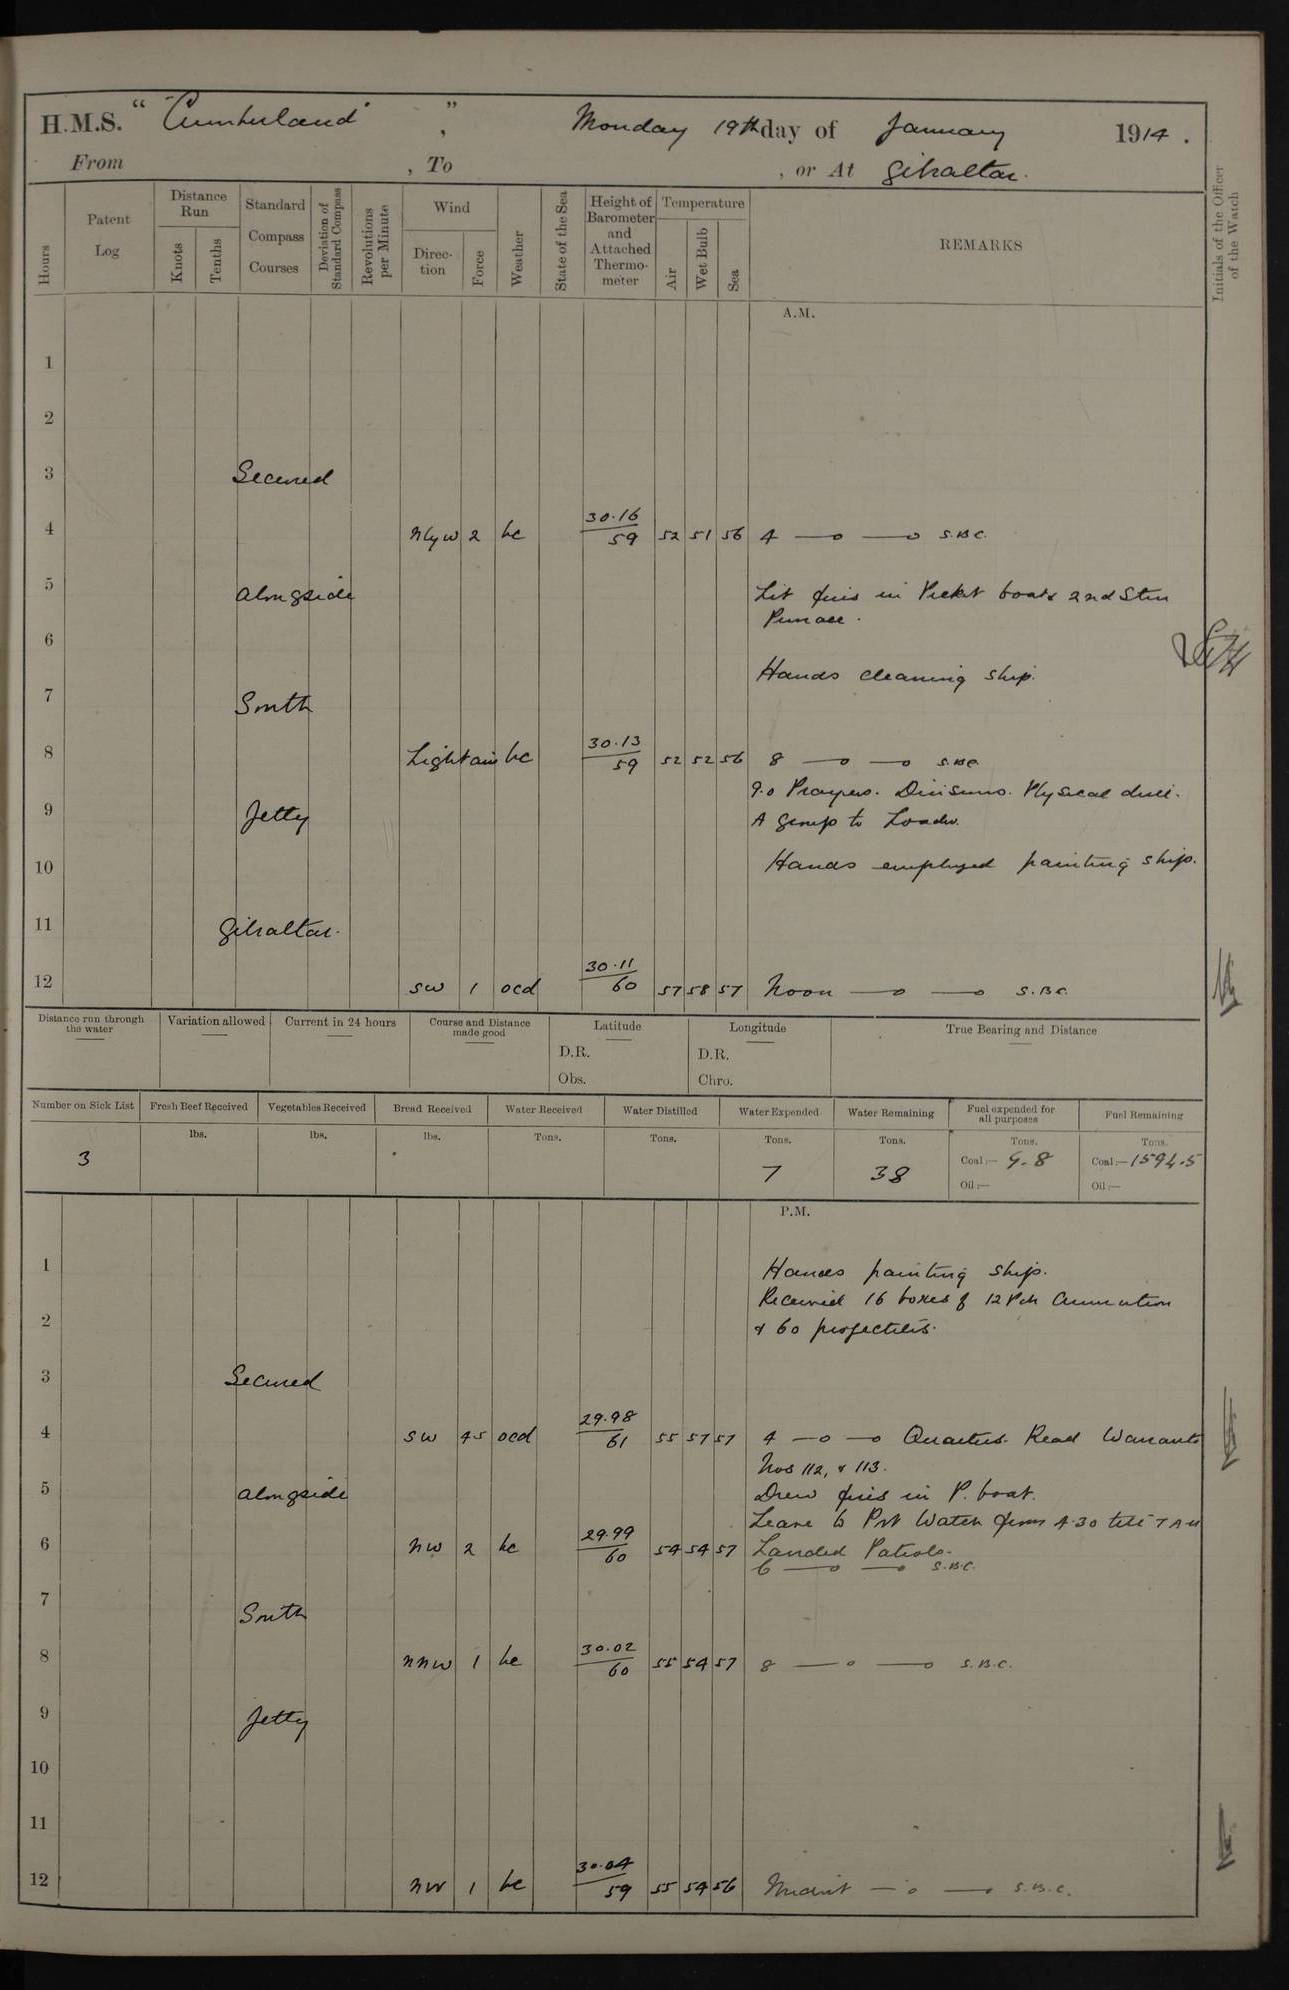 H.M.S. "Cumberland", Monday 19th day of January 1914.
From , To , or At Gibraltar.
Hours
Patent Log
Distance Run
Knots
Tenths
Standard Compass Courses
Deviation of Standard Compass
Revolutions per Minute
Wind
Direction
Force
Weather
State of the Sea
Height of Barometer and Attached Thermometer
Temperature
Air
Wet Bulb
Sea
REMARKS
Initials of the Officer of the Watch
A.M.
1
2
3 Secured
4 Nly W 2 bc 30.16 59 52 51 56 4 —o —o S.B.C.
5 alongside Lit fires in Picket boat & 2nd Stm
Pinnace.
6
Hands cleaning ship.
7 South
8 Light airs bc 30.13 59 52 52 56 8 —o —o S.B.C.
9.0 Prayers. Divisions. Physical drill.
9 Jetty A Group to Loader.
10 Hands employed painting ship.
11 Gibraltar.
12 SW 1 ocd 30.11 60 57 58 57 Noon —o —o S.B.C.
Distance run through the water
Variation allowed
Current in 24 hours
Course and Distance made good
Latitude
D.R.
Obs.
Longitude
D.R.
Chro.
True Bearing and Distance
Number on Sick List
Fresh Beef Received
Vegetables Received
Bread Received
Water Received
Water Distilled
Water Expended
Water Remaining
Fuel expended for all purposes
Fuel Remaining
lbs. lbs. lbs. Tons. Tons. Tons. Tons. Tons. Tons.
3 7 38 Coal:— 9.8 Coal:— 1594.5
Oil:— Oil:—
P.M.
1 Hands painting ship.
Received 16 boxes of 12 Pdr Ammunition
2 & 60 projectiles.
3 Secured
4 SW 4-5 ocd 29.98 61 55 57 57 4 —o —o Quarters. Read Warrants
Nos 112, & 113.
5 alongside Drew fires in P. boat.
Leave to Port Watch from 4.30 till 7 AM
6 NW 2 bc 29.99 60 54 54 57 Landed Patrols.
6 —o —o S.B.C.
7 South
8 NNW 1 bc 30.02 60 55 54 57 8 —o —o S.B.C.
9 Jetty
10
11
12 NW 1 bc 30.04 59 55 54 56 Midnt —o —o S.B.C.